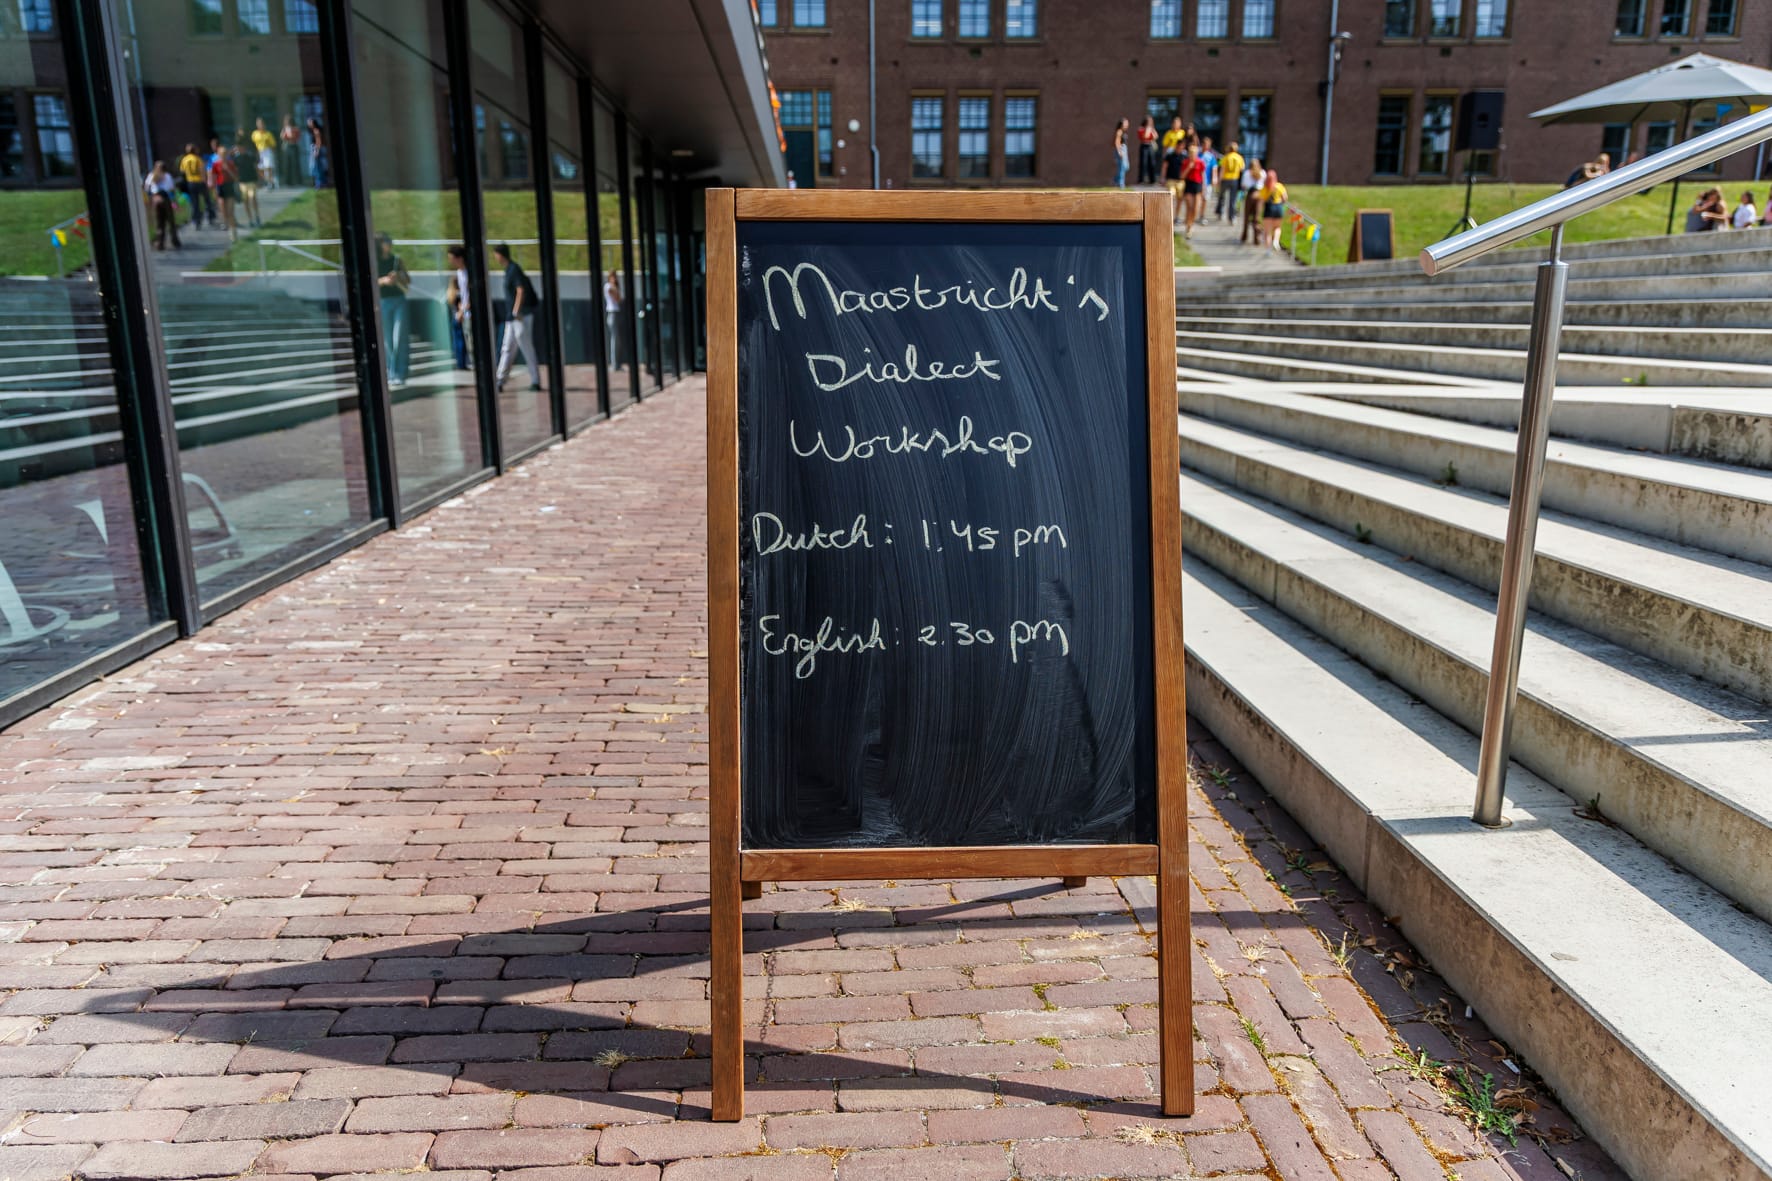 Maastricht's
Dialect
Workshop
Dutch: 1:45 pm
English: 2.30 pm